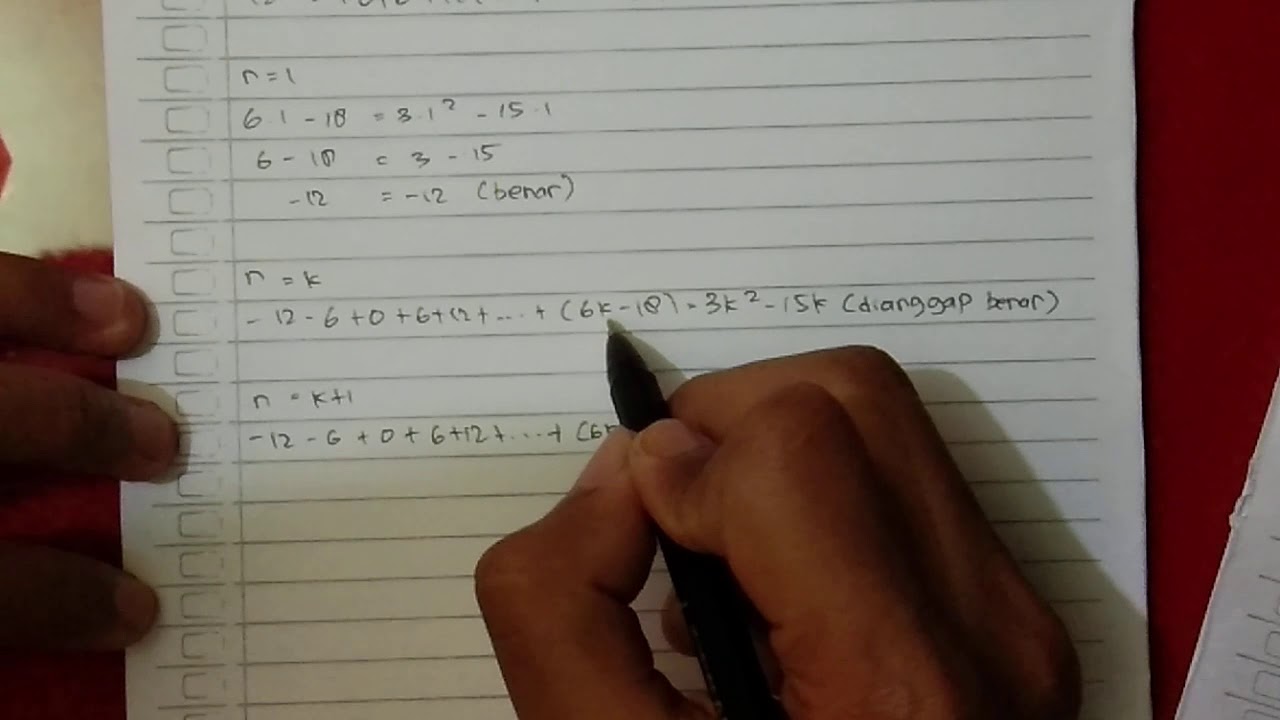 n = 1
6.1 - 18 = 3.1² - 15.1
6 - 18 = 3 - 15
-12 = -12 (benar)
n = k
- 12 - 6 + 0 + 6 + 12 + ... + (6k - 18) = 3k² - 15k (dianggap benar)
n = k+1
-12 - 6 + 0 + 6 + 12 + ... + (6k